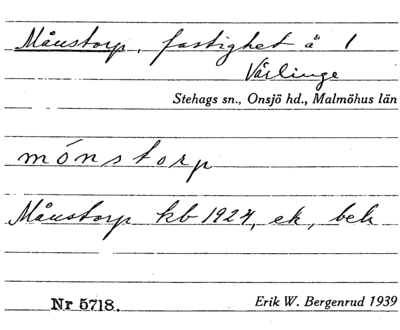 Månstorp, fastighet å 1
Värlinge
Stehags sn., Onsjö hd., Malmöhus län
mónstorp
Månstorp kb 1924, ek, beh
Nr 5718. Erik W. Bergenrud 1939